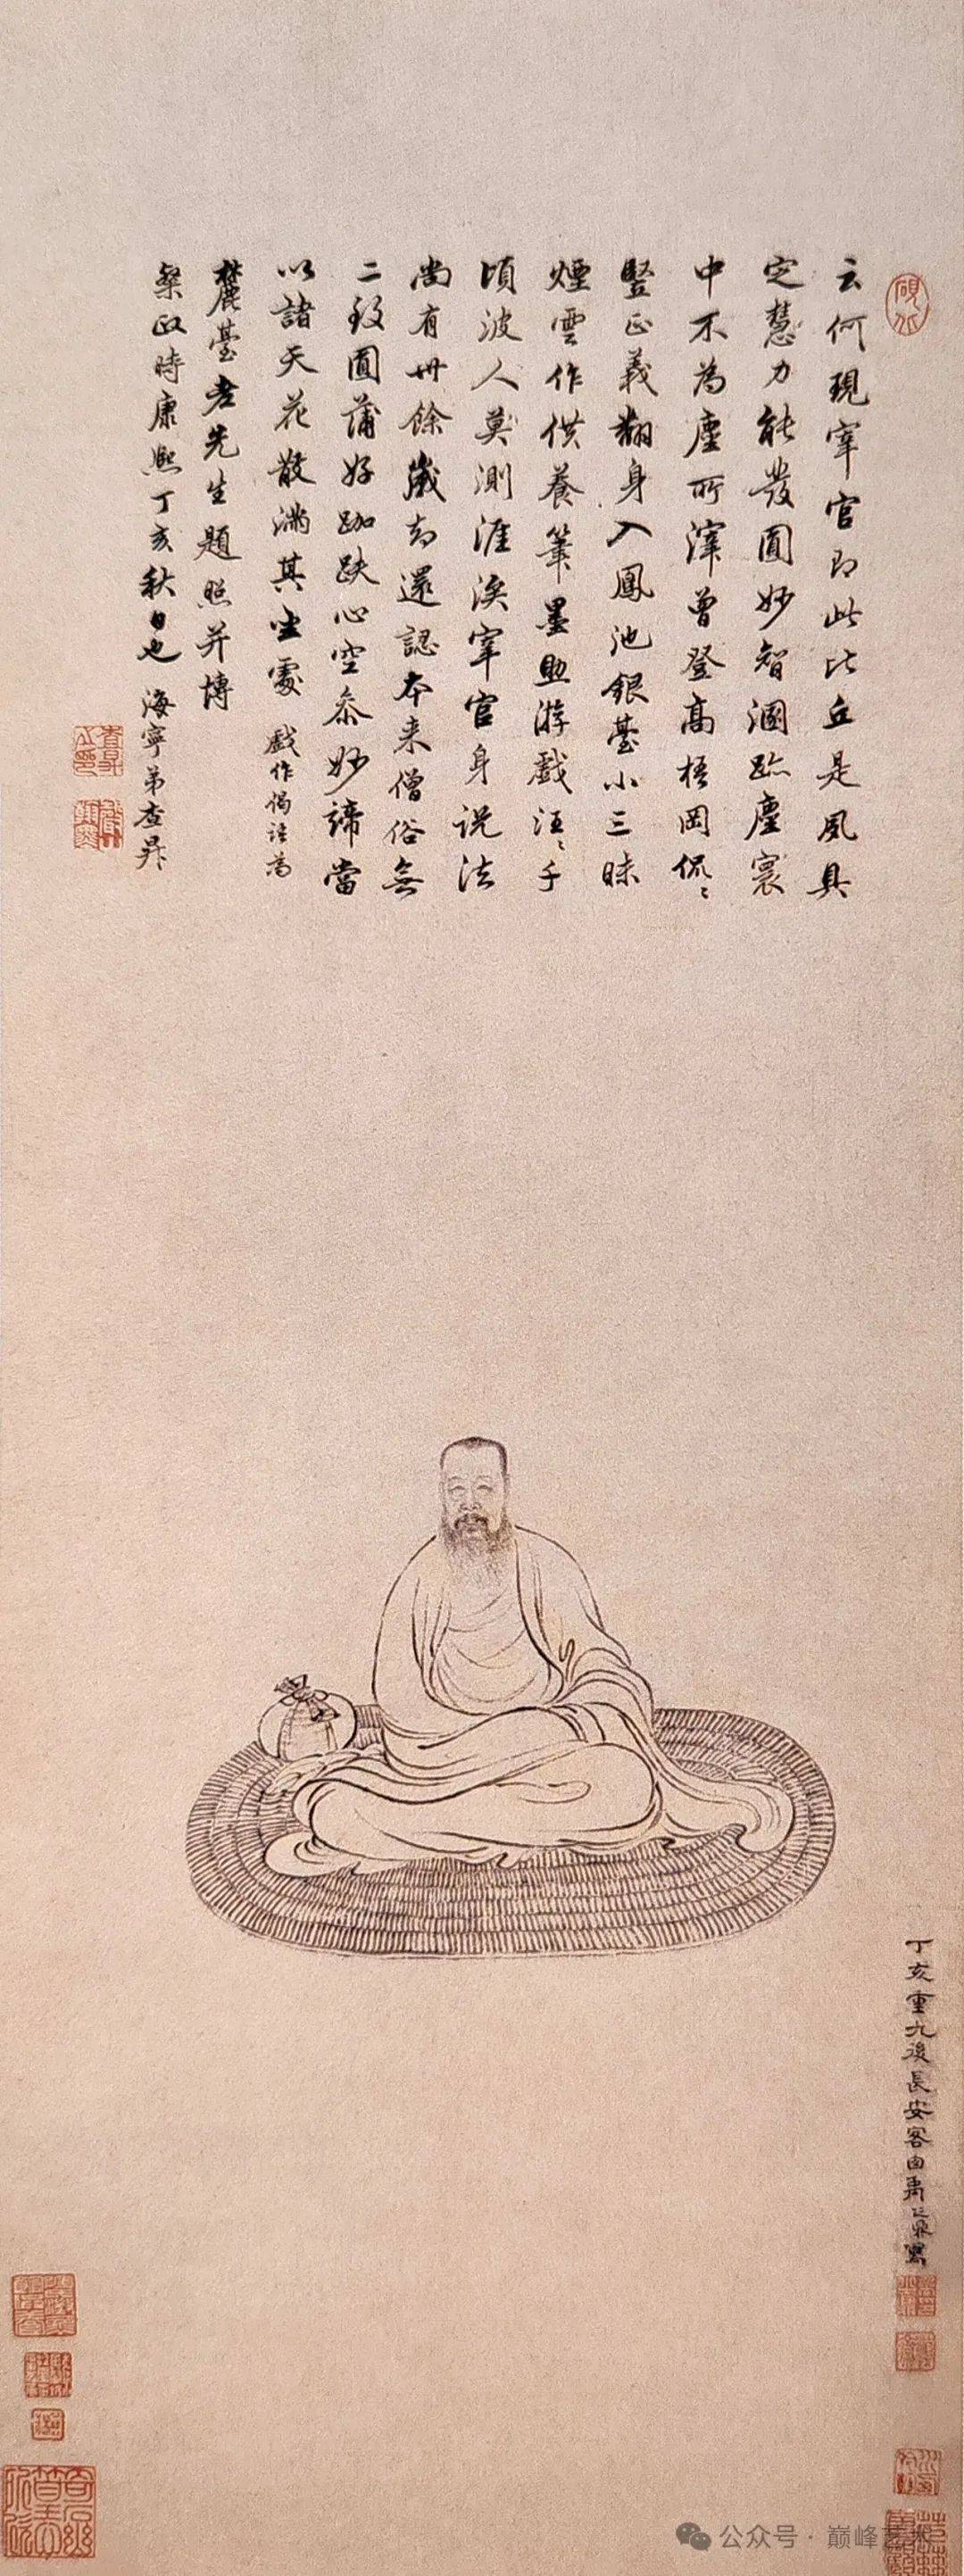 云何現宰官即此比丘是夙具
定慧力能發圓妙智溷跡塵寰
中不為塵所滓曾登高梧岡侃〻
豎正義翻身入鳳池銀臺小三昧
煙雲作供養筆墨助游戲汪〻千
頃波人莫測涯涘宰官身說法
尚有卅餘歲却還認本来僧俗無
二致圓蒲好跏趺心空參妙諦當
以諸天花散滿其坐處 戲作偈語為
麓臺老先生題照并博
粲政時康熙丁亥秋日也 海寧弟查昇
丁亥重九後長安客禹之鼎寫
公众号·巅峰艺术